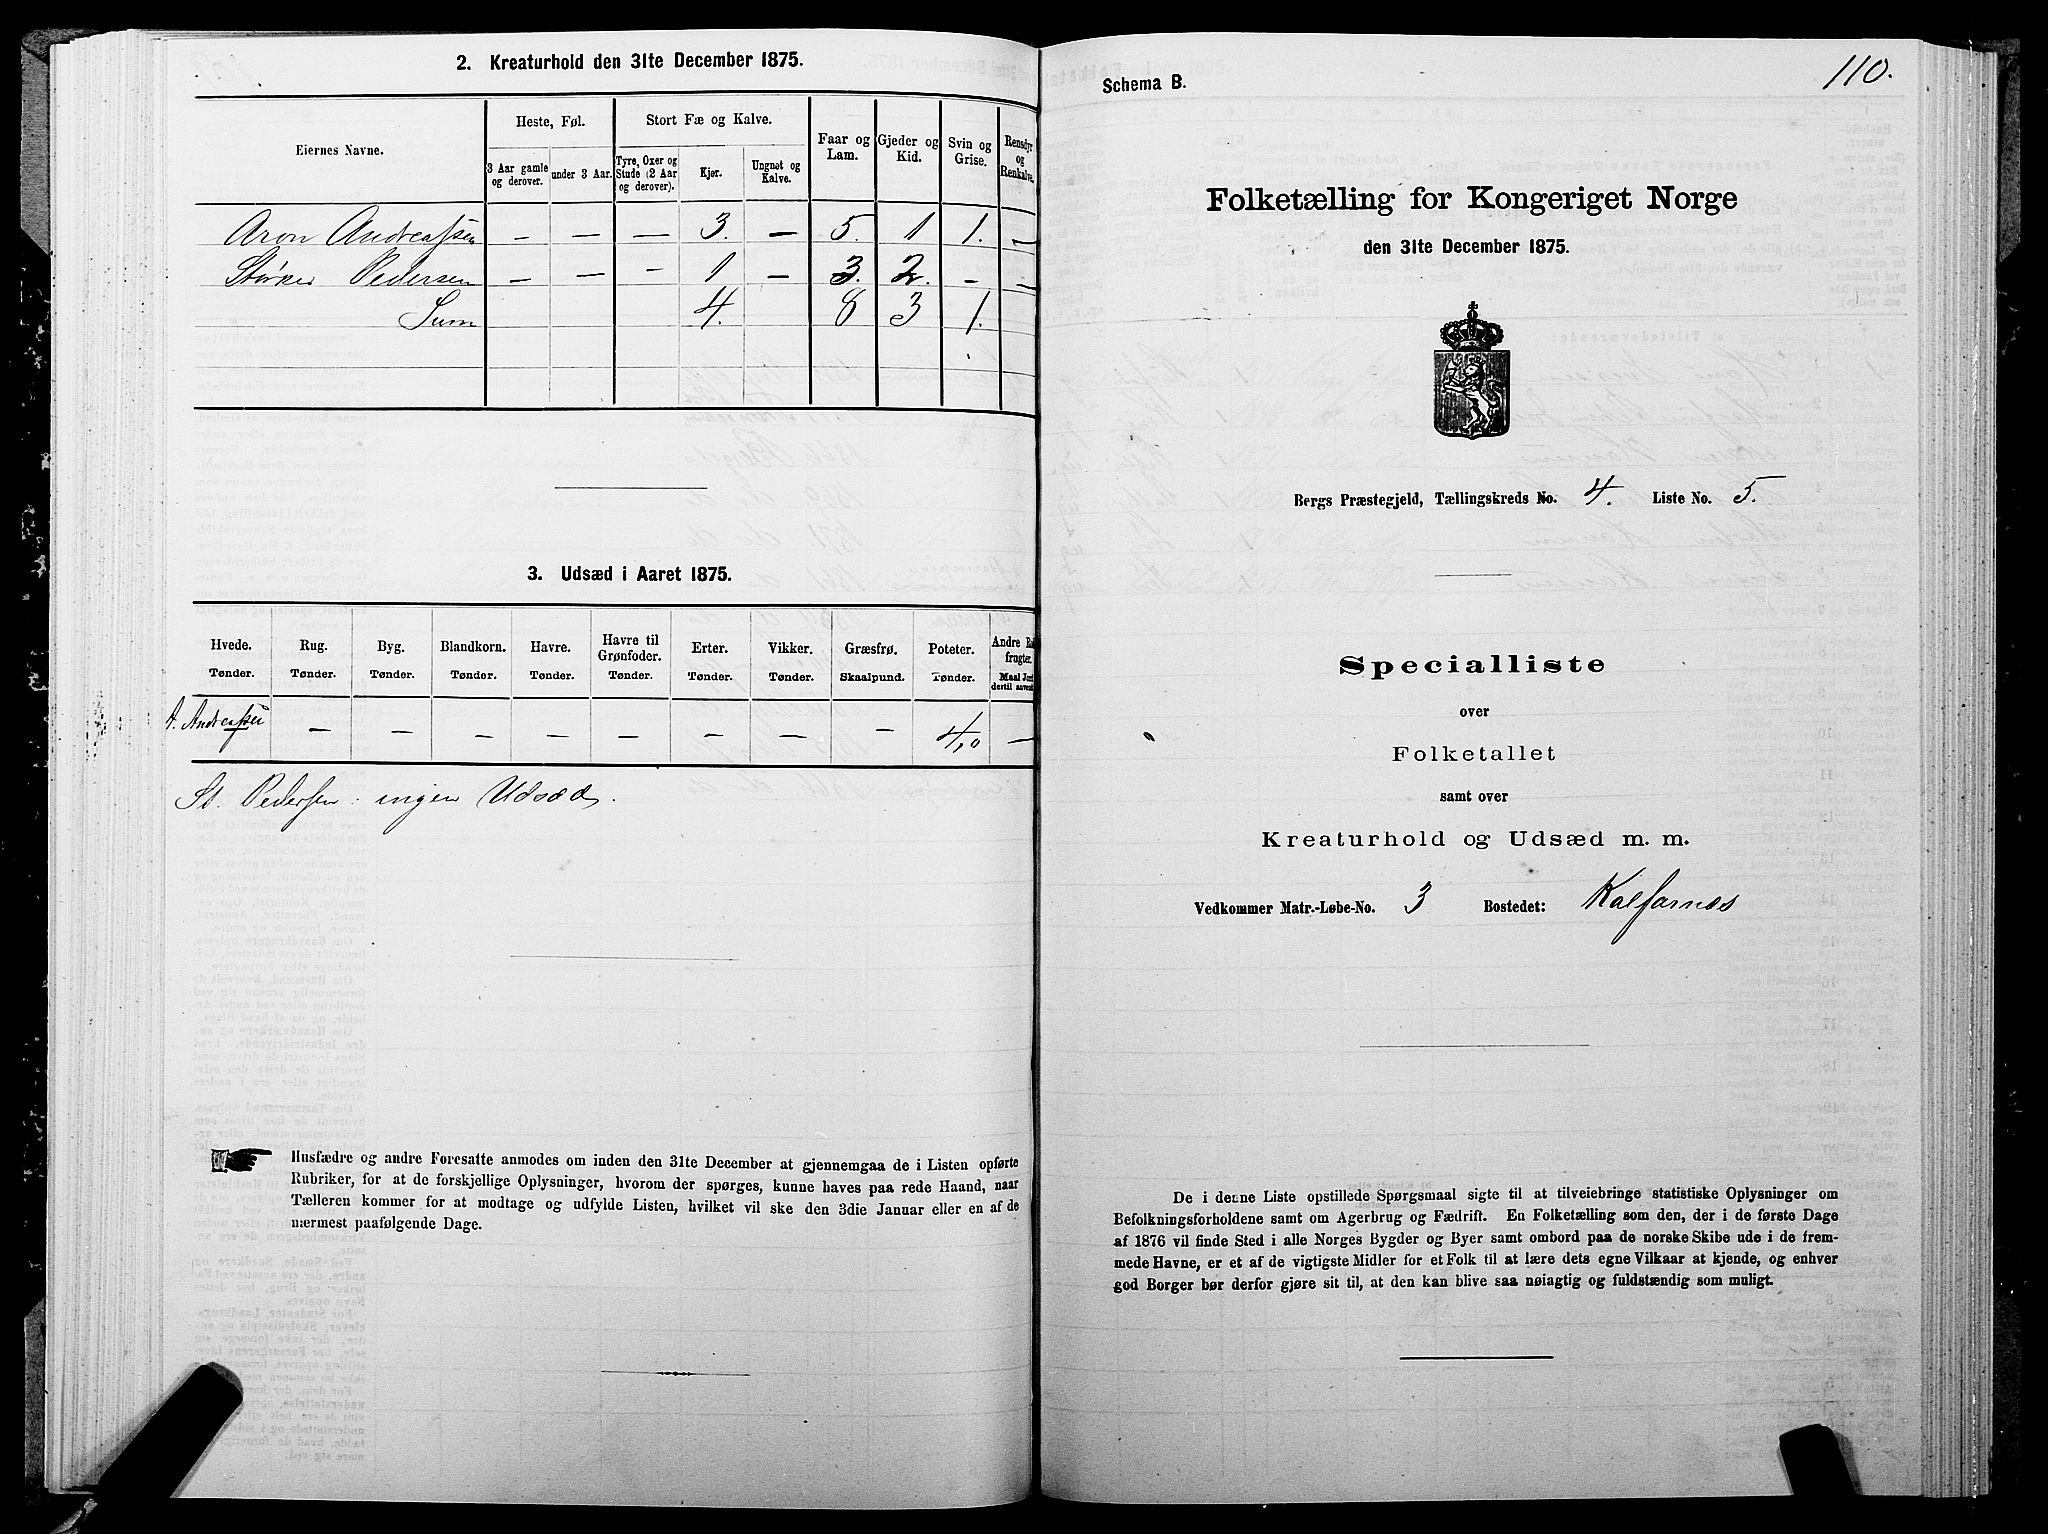 2. Kreaturhold den 31te December 1875.
Eiernes Navne.
Heste, Føl.
Stort Fæ og Kalve.
Faar og Lam.
Gjeder og Kid.
Svin og Grise.
Rensdyr og Renkalve.
3 Aar gamle og derover.
under 3 Aar.
Tyre, Oxer og Stude (2 Aar og derover).
Kjør.
Ungnøt og Kalve.
Aron Andreassen – – – 3. – 5. 1 1. –
Størker Pedersen – – – 1 – 3. 2. – –
Sum 4. 8 3 1.
3. Udsæd i Aaret 1875.
Hvede. Rug. Byg. Blandkorn. Havre. Havre til Grønfoder. Erter. Vikker. Græsfrø. Poteter. Andre frugter.
Tønder. Tønder. Tønder. Tønder. Tønder. Tønder. Tønder. Tønder. Skaalpund. Tønder. Maal dertil
A. Andreassen – – – – – – – – – 4,0 –
St. Pedersen: ingen Udsæd.
Husfædre og andre Foresatte anmodes om inden den 31te December at gjennemgaa de i Listen opførte
Rubriker, for at de forskjellige Oplysninger, hvorom der spørges, kunne haves paa rede Haand, naar
Tælleren kommer for at modtage og udfylde Listen, hvilket vil ske den 3die Januar eller en af de
nærmest paafølgende Dage.
110.
Schema B.
Folketælling for Kongeriget Norge
den 31te December 1875.
Bergs Præstegjeld, Tællingskreds No. 4. Liste No. 5.
Specialliste
over
Folketallet
samt over
Kreaturhold og Udsæd m. m.
Vedkommer Matr.-Løbe-No. 3 Bostedet: Kalfarnes
De i denne Liste opstillede Spørgsmaal sigte til at tilveiebringe statistiske Oplysninger om
Befolkningsforholdene samt om Agerbrug og Fædrift. En Folketælling som den, der i de første Dage
af 1876 vil finde Sted i alle Norges Bygder og Byer samt ombord paa de norske Skibe ude i de frem-
mede Havne, er et af de vigtigste Midler for et Folk til at lære dets egne Vilkaar at kjende, og enhver
god Borger bør derfor gjøre sit til, at den kan blive saa nøiagtig og fuldstændig som muligt.